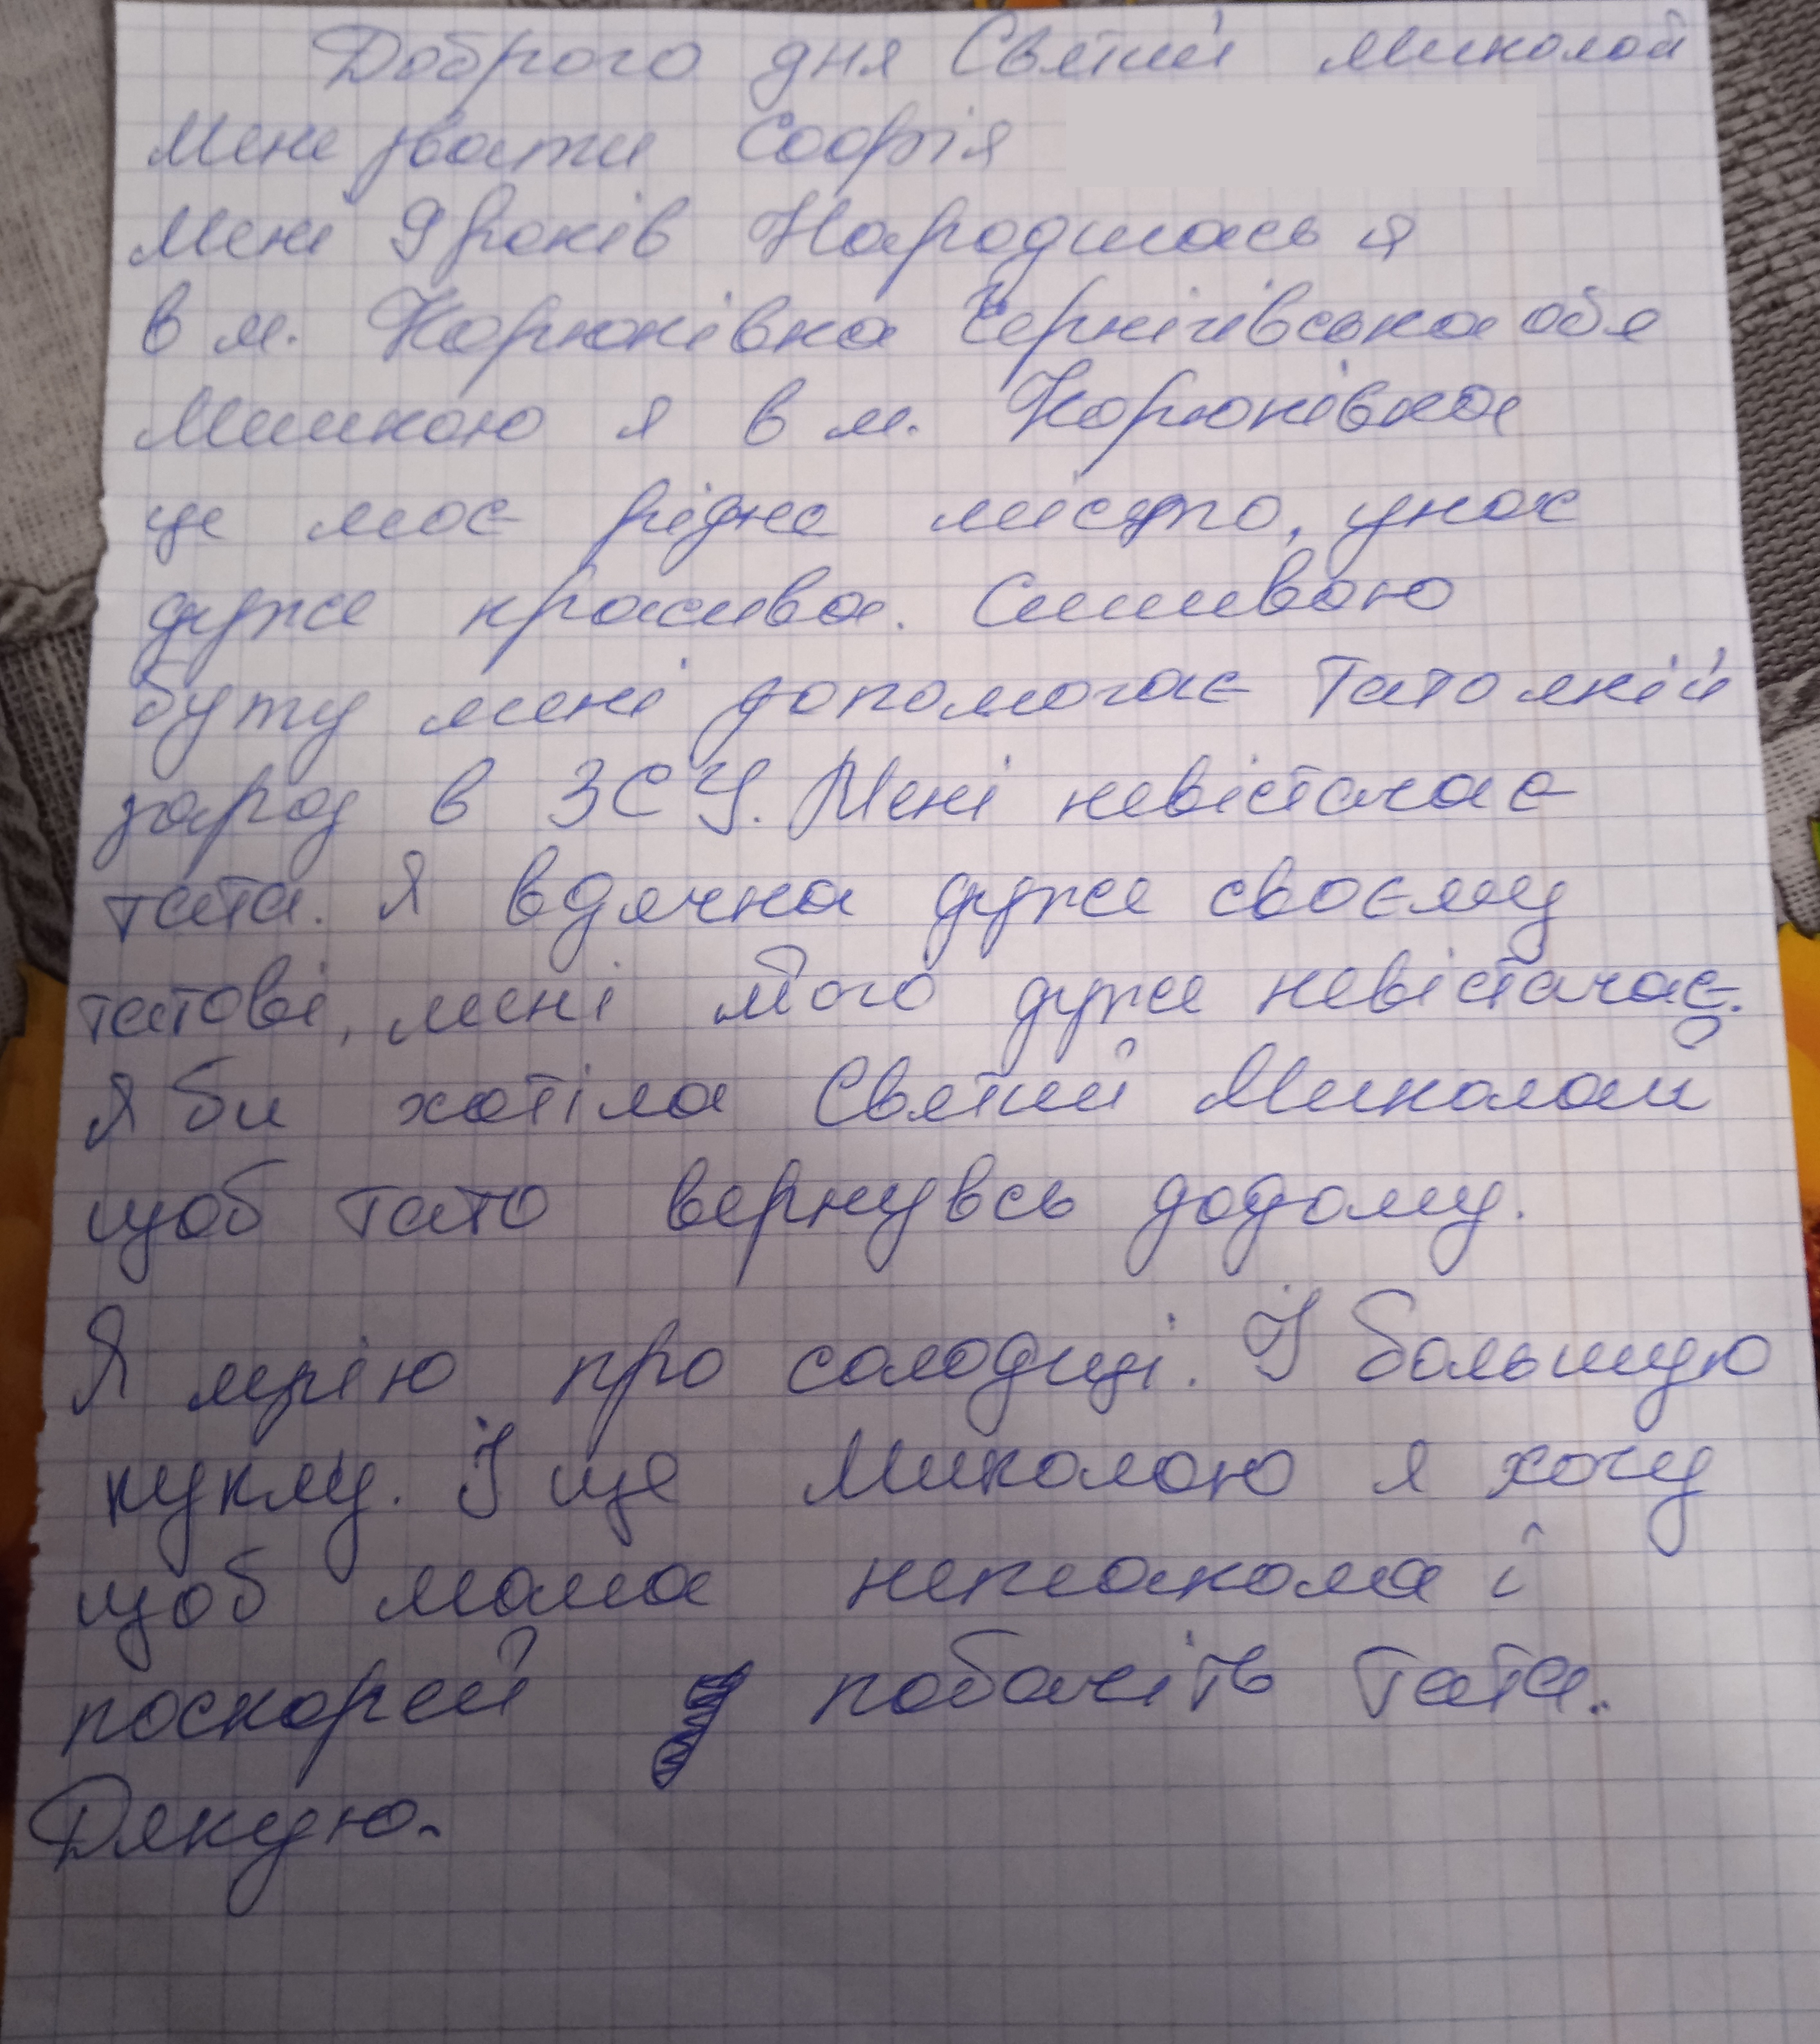 Доброго дня Святий Миколай
Мене звати Софія
Мені 9 років Народилась я
в м. Корюківка Чернігівська обл
Мешкаю я в м. Корюківка
це моє рідне місто, унас
дуже красиво. Сильною
буту мені допомогає Тато якій
зараз в ЗСУ. Мені невістачає
тата. Я вдячна дуже своєму
татові, мені його дуже невістачає.
Я би хотіла Святий Миколай
щоб тато вернувсь додому.
Я мрію про солодщі. І большую
куклу. І ще Миколаю я хочу
щоб мама неплакала і
поскорей побачіть тата.
Дякую.